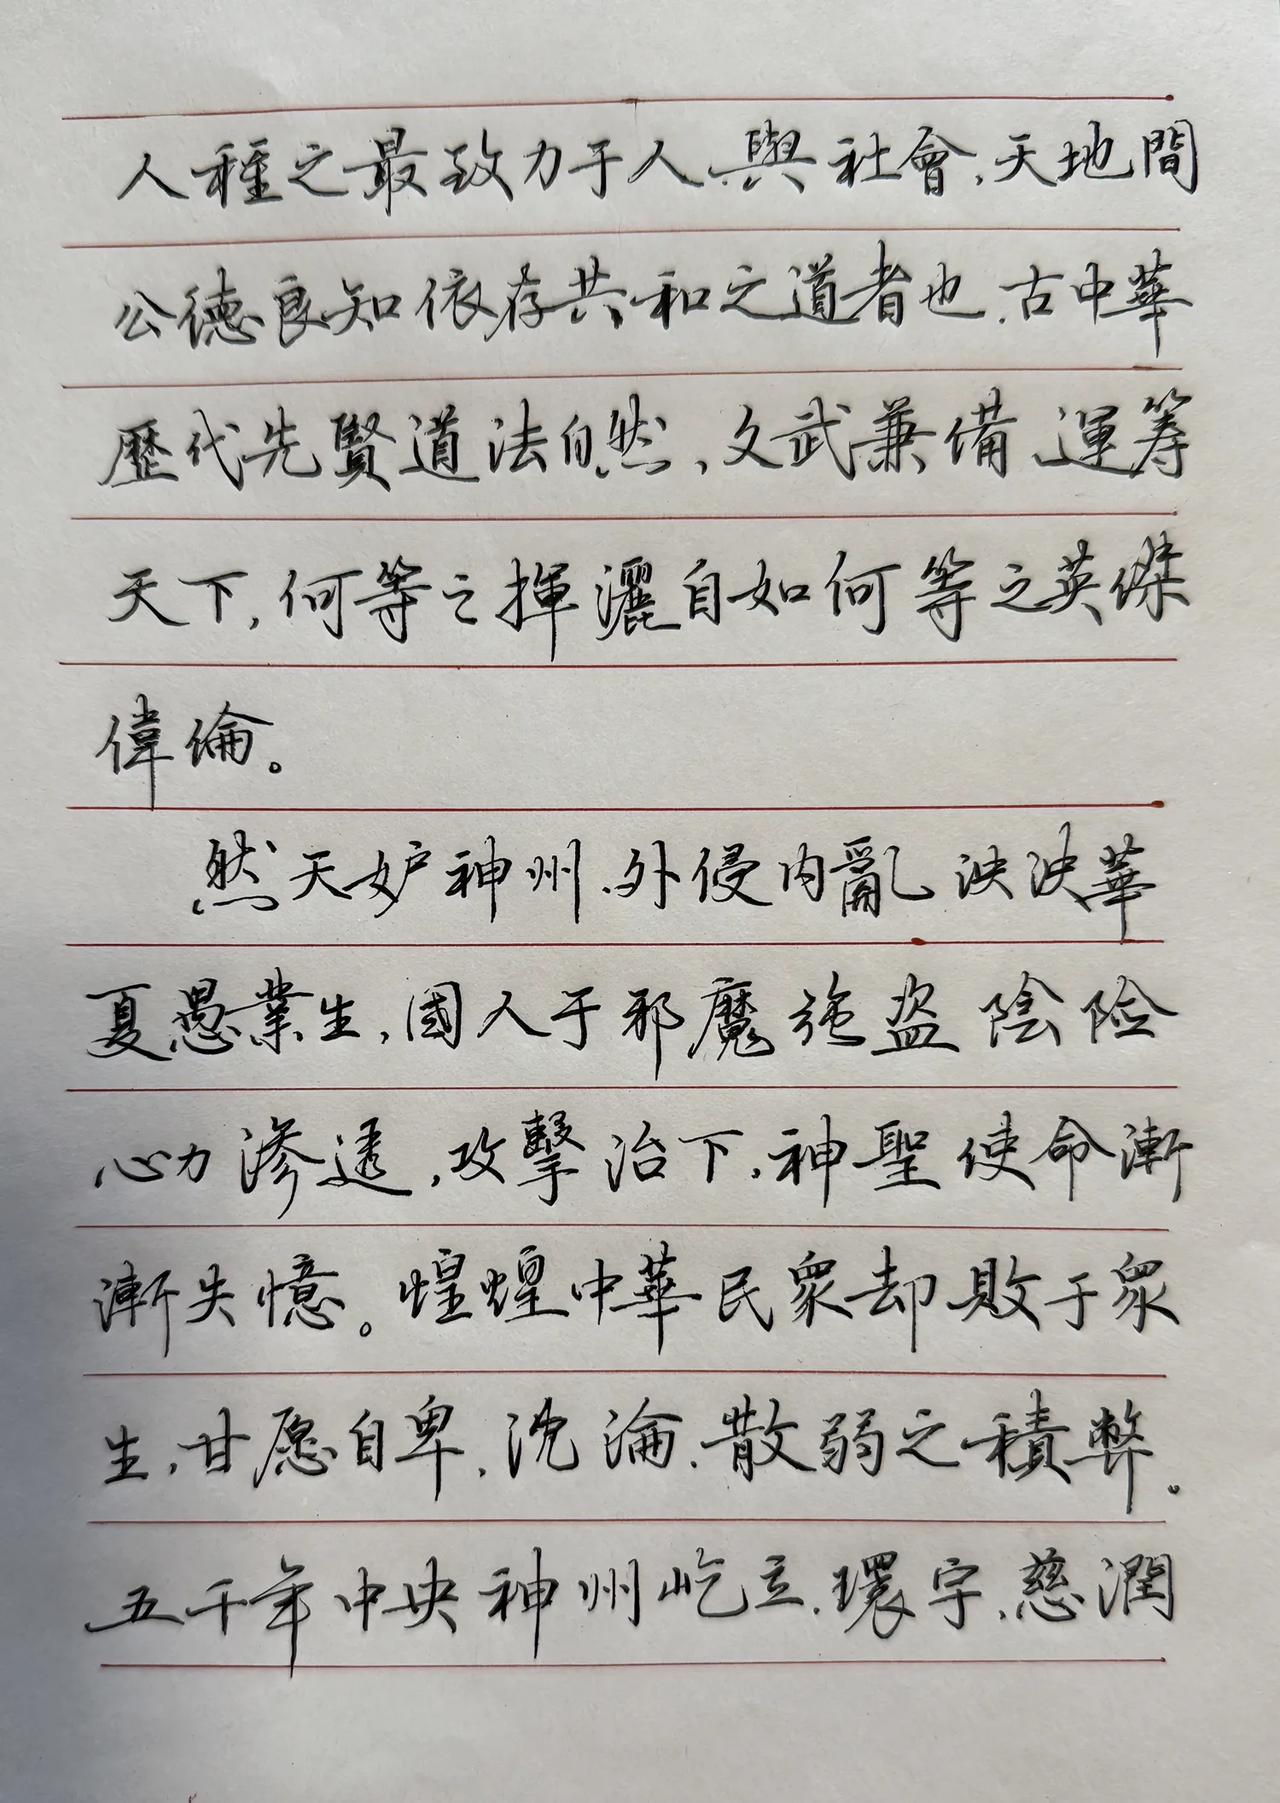 人種之最致力于人與社會、天地間
公德良知依存共和之道者也.古中華
歷代先賢道法自然、文武兼備、運筹
天下,何等之揮灑自如何等之英傑
偉倫。
然天妒神州、外侵内亂泱泱華
夏愚業生,國人于邪魔施盗陰险
心力渗透,攻擊治下,神聖使命漸
漸失憶。煌煌中華民衆却敗于衆
生,甘愿自卑、沈淪、散弱之積弊。
五千年中央神州屹立.環宇、慈潤